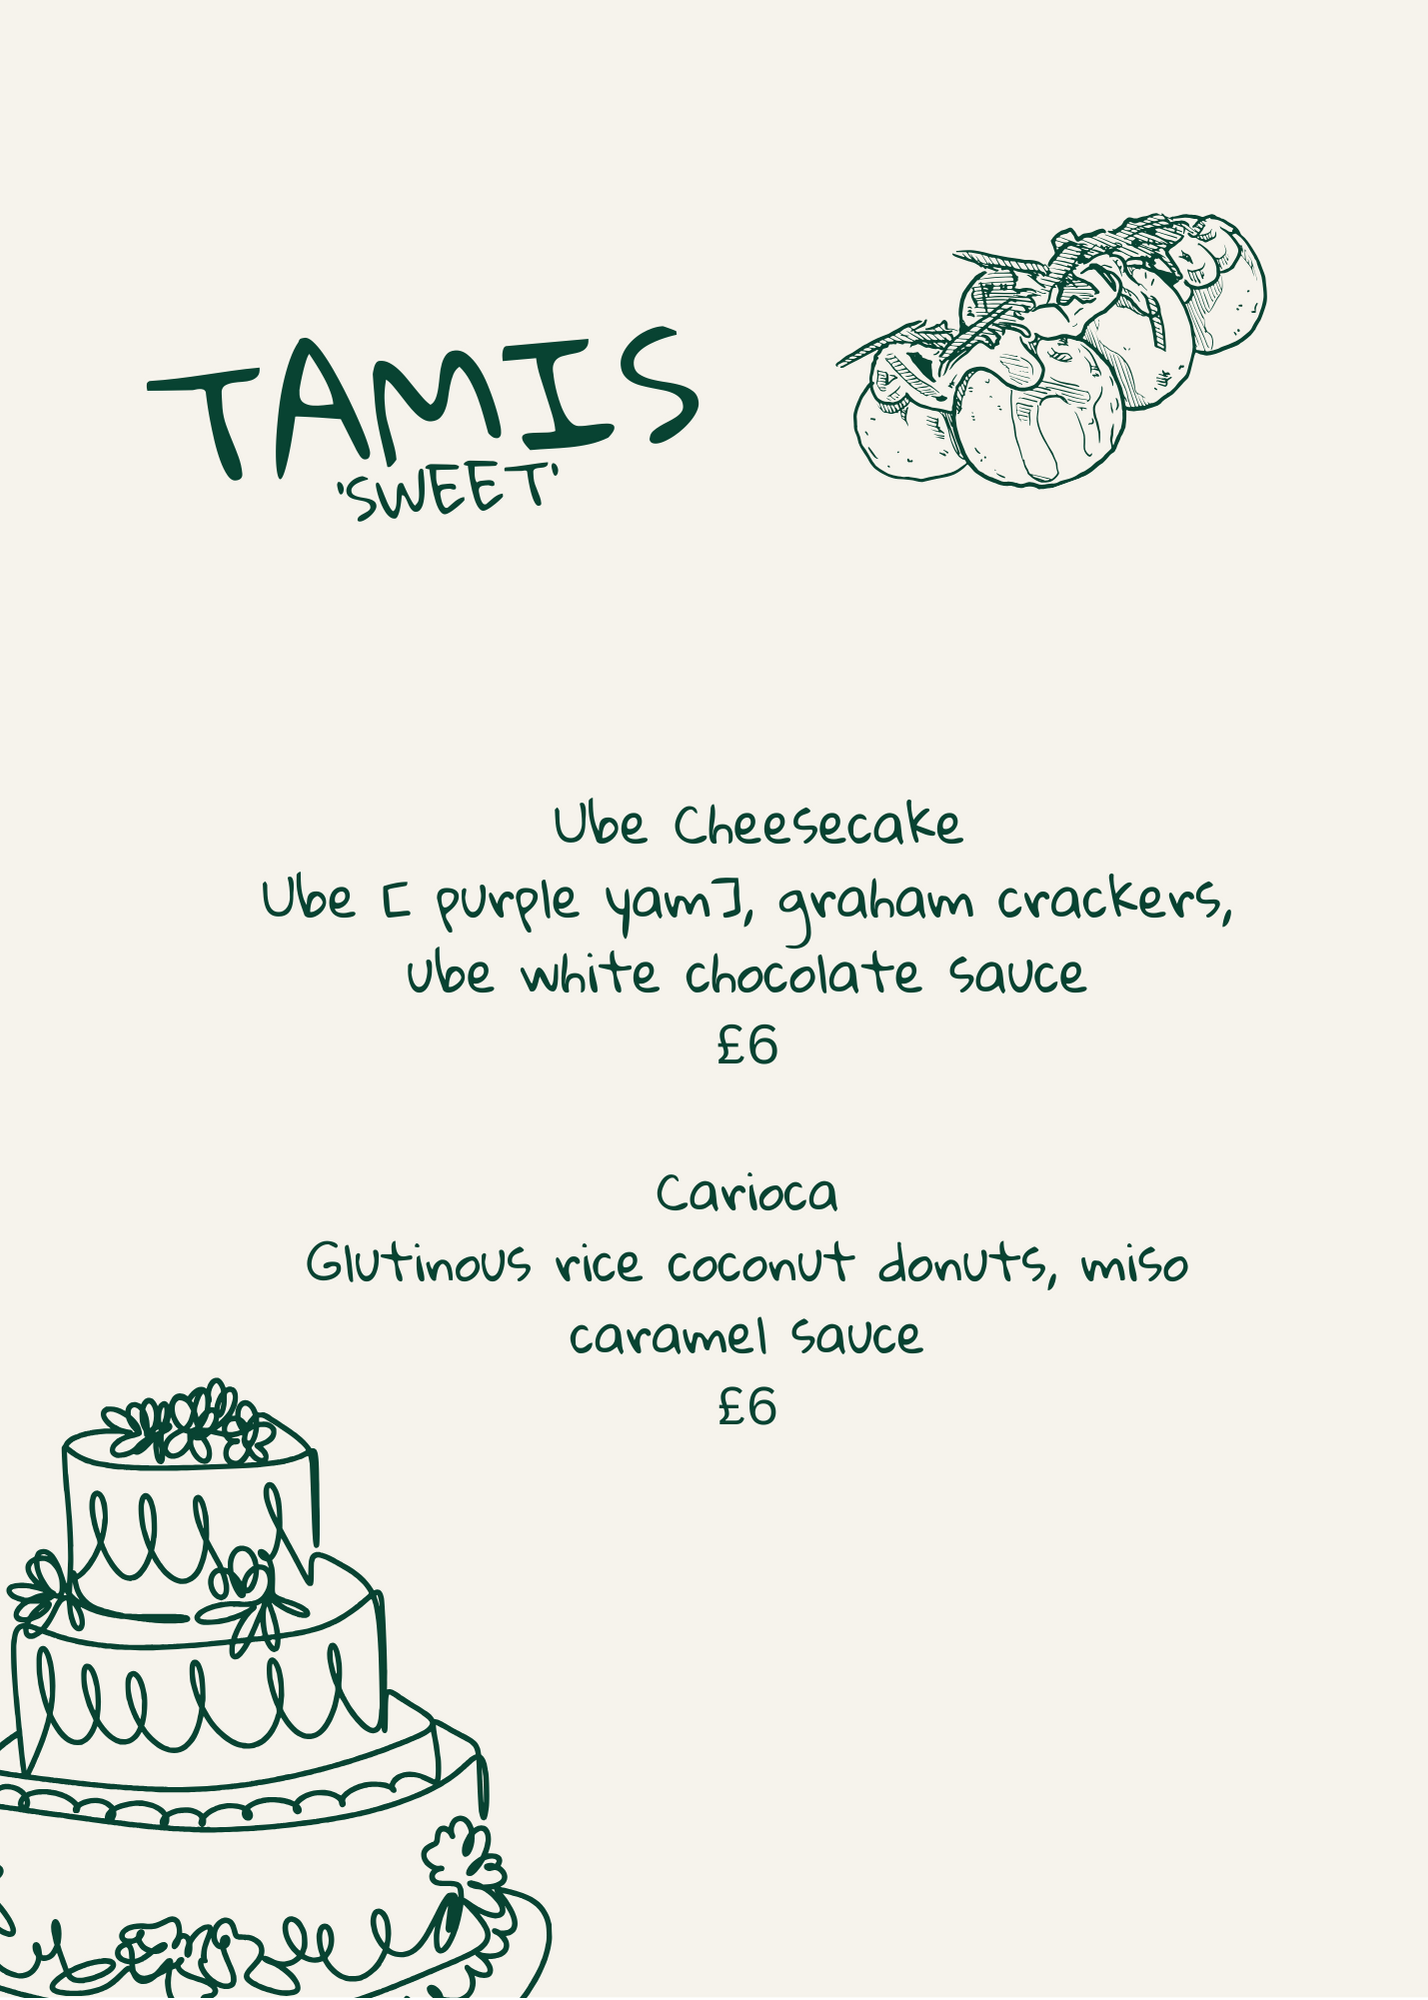 TAMIS
'SWEET'
Ube Cheesecake
Ube [ purple yam], graham crackers,
ube white chocolate sauce
£6
Carioca
Glutinous rice coconut donuts, miso
caramel sauce
£6